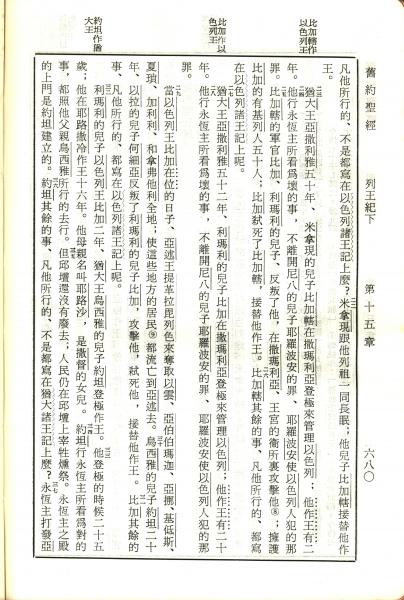 舊約聖經　列王紀下　第十五章　六八〇
凡他所行的、不是都寫在以色列諸王記上麼？米拿現跟他列祖一同長眠；他兒子比加轄接替他作
王。
比加轄作以色列王
猶大王亞撒利雅五十年、米拿現的兒子比加轄在撒瑪利亞登極來管理以色列；他作王有二
年。他行永恆主所看爲壞的事，不離開尼八的兒子耶羅波安的罪、耶羅波安使以色列人犯的那
罪。比加轄的軍官比加、利瑪利的兒子、反叛了他，在撒瑪利亞、王宮的衞所裏攻擊他⑧；擁護
比加的有基列人五十人；比加弒死了比加轄，接替他作王。比加轄其餘的事、凡他所行的、都寫
在以色列諸王記上呢。
比加作以色列王
猶大王亞撒利雅五十二年、利瑪利的兒子比加在撒瑪利亞登極來管理以色列；他作王有二十
年。他行永恆主所看爲壞的事，不離開尼八的兒子耶羅波安的罪、耶羅波安使以色列人犯的那
罪。
當以色列王比加在位的日子、亞述王提革拉毘列色來奪取以雲、亞伯伯瑪迦、亞挪、基低斯、
夏瑣、加利利、和拿弗他利全地；使這些地方的居民⑨都流亡到亞述去。烏西雅的兒子約坦二十
年、以拉的兒子何細亞反叛了利瑪利的兒子比加，攻擊他，弒死他，接替他作王。比加其餘的
事、凡他所行的、都寫在以色列諸王記上呢。
約坦作猶大王
利瑪利的兒子以色列王比加二年、猶大王烏西雅的兒子約坦登極作王。他登極的時候二十五
歲；他在耶路撒冷作王十六年。他母親名叫耶路沙，是撒督的女兒。約坦行永恆主所看爲對的
事，都照他父親烏西雅所行的去行。但邱壇還沒有廢去；人民仍在邱壇上宰牲燻祭。永恆主之殿
的上門是約坦建立的。約坦其餘的事、凡他所行的、不是都寫在猶大諸王記上麼？永恆主打發亞